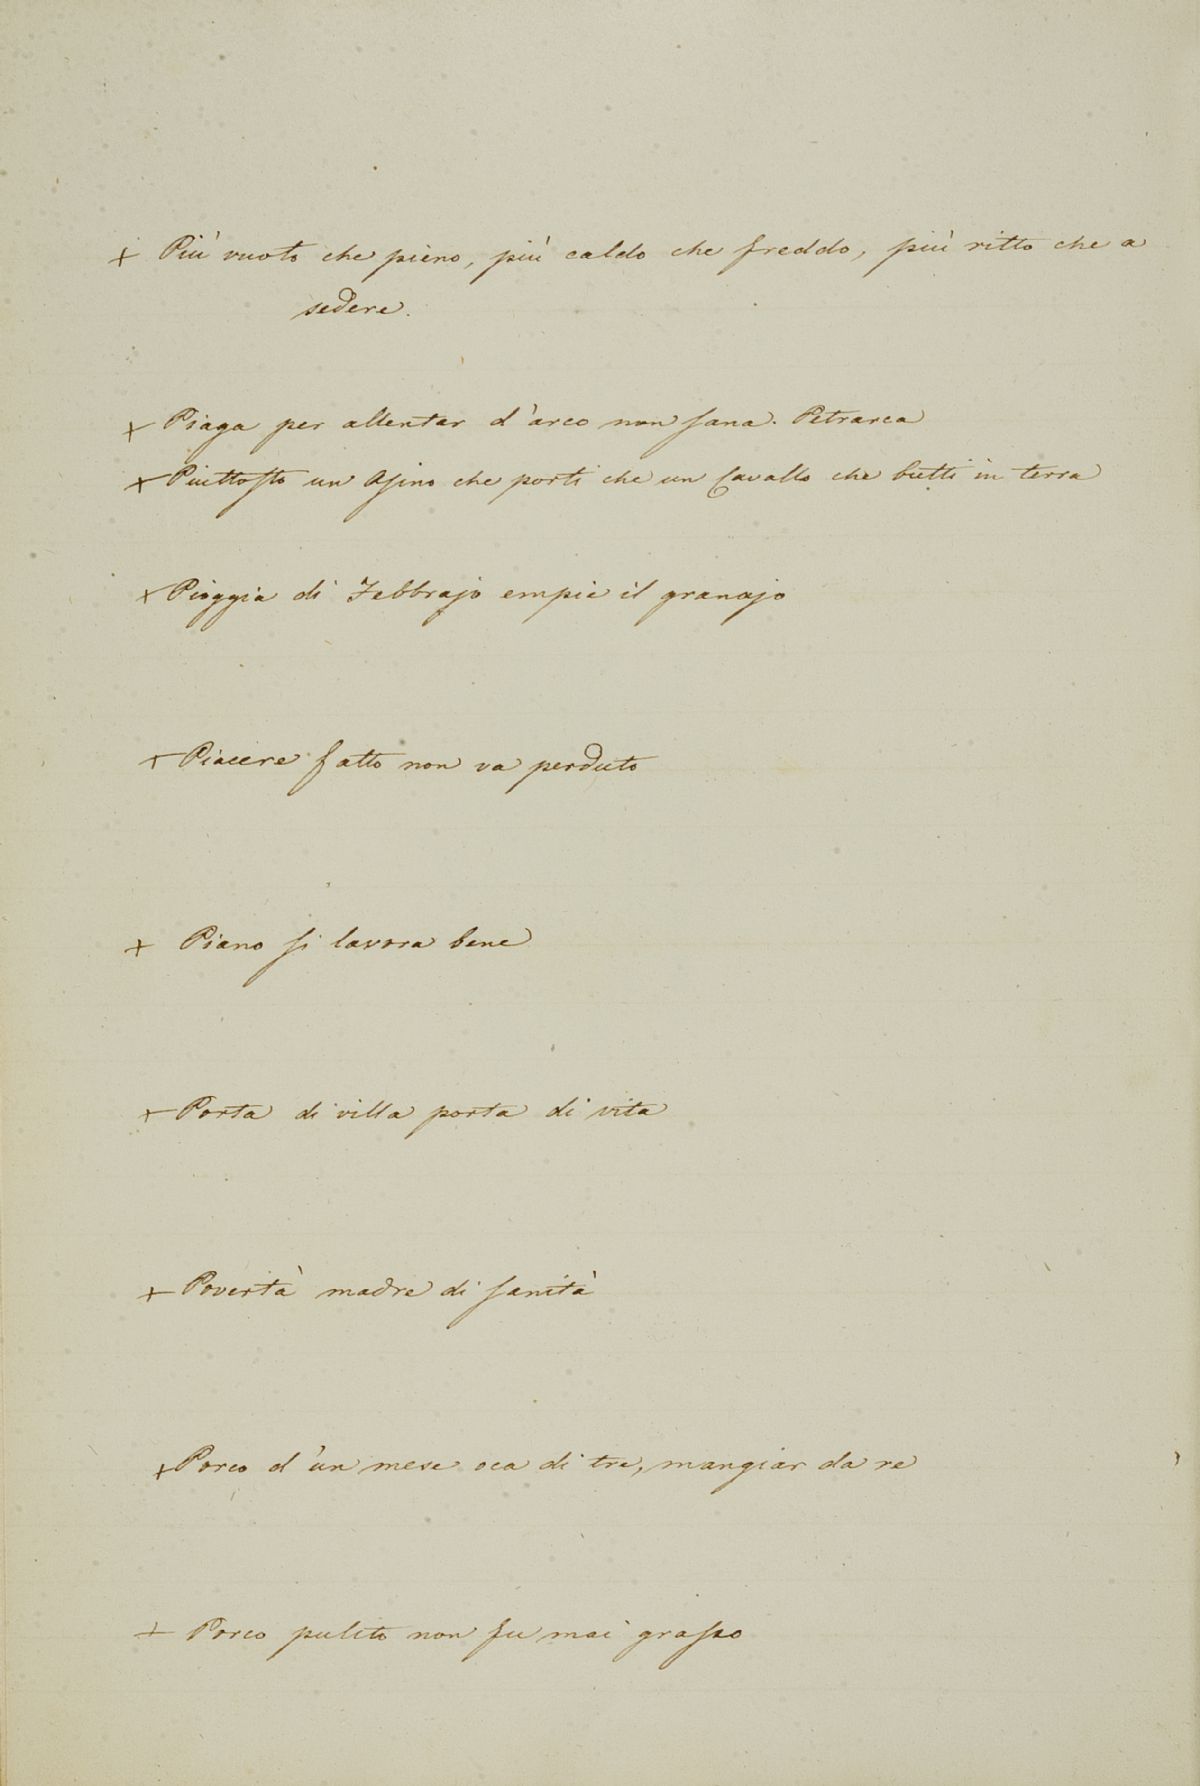 + Più vuoto che pieno, più caldo che freddo, più ritto che a
sedere.
+ Piaga per allentar d'arco non sana. Petrarca
+ Piuttosto un Asino che porti che un Cavallo che butti in terra
+ Pioggia di Febbrajo empie il granajo
+ Piacere fatto non va perduto
+ Piano si lavora bene
+ Porta di villa porta di vita
+ Povertà madre di sanità
+ Porco d'un mese oca di tre, mangiar da re
+ Porco pulito non fu mai grasso